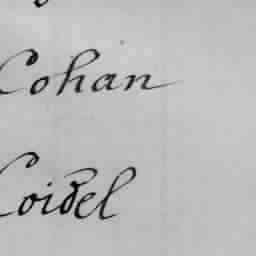 Cohan
Coidel